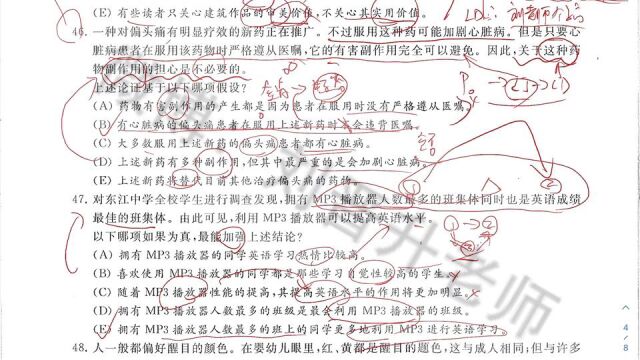 (E) 有些读者只关心建筑作品的审美价值,不关心其实用价值。
46. 一种对偏头痛有明显疗效的新药正在推广。不过服用这种药可能加剧心脏病。但是只要心
脏病患者在服用该药物时严格遵从医嘱,它的有害副作用完全可以避免。因此,关于这种药
物副作用的担心是不必要的。
上述论证基于以下哪项假设?
(A) 药物有害副作用的产生都是因为患者在服用时没有严格遵从医嘱。
(B) 有心脏病的偏头痛患者在服用上述新药时不会违背医嘱。
(C) 大多数服用上述新药的偏头痛患者都有心脏病。
(D) 上述新药有多种副作用,但其中最严重的是会加剧心脏病。
(E) 上述新药将替代目前其他治疗偏头痛的药物。
47. 对东江中学全校学生进行调查发现,拥有 MP3 播放器人数最多的班集体同时也是英语成绩
最佳的班集体。由此可见,利用 MP3 播放器可以提高英语水平。
以下哪项如果为真,最能加强上述结论?
(A) 拥有 MP3 播放器的同学英语学习热情比较高。
(B) 喜欢使用 MP3 播放器的同学都是那些学习自觉性较高的学生。
(C) 随着 MP3 播放器性能的提高,其提高英语水平的作用将更加明显。
(D) 拥有 MP3 播放器人数最多的班级是最会利用 MP3 播放器的班级。
(E) 拥有 MP3 播放器人数最多的班上的同学更多地利用 MP3 进行英语学习。
48. 人一般都偏好醒目的颜色。在婴幼儿眼里,红、黄都是醒目的颜色,这与成人相同;但与许多
刘智升老师
4/8